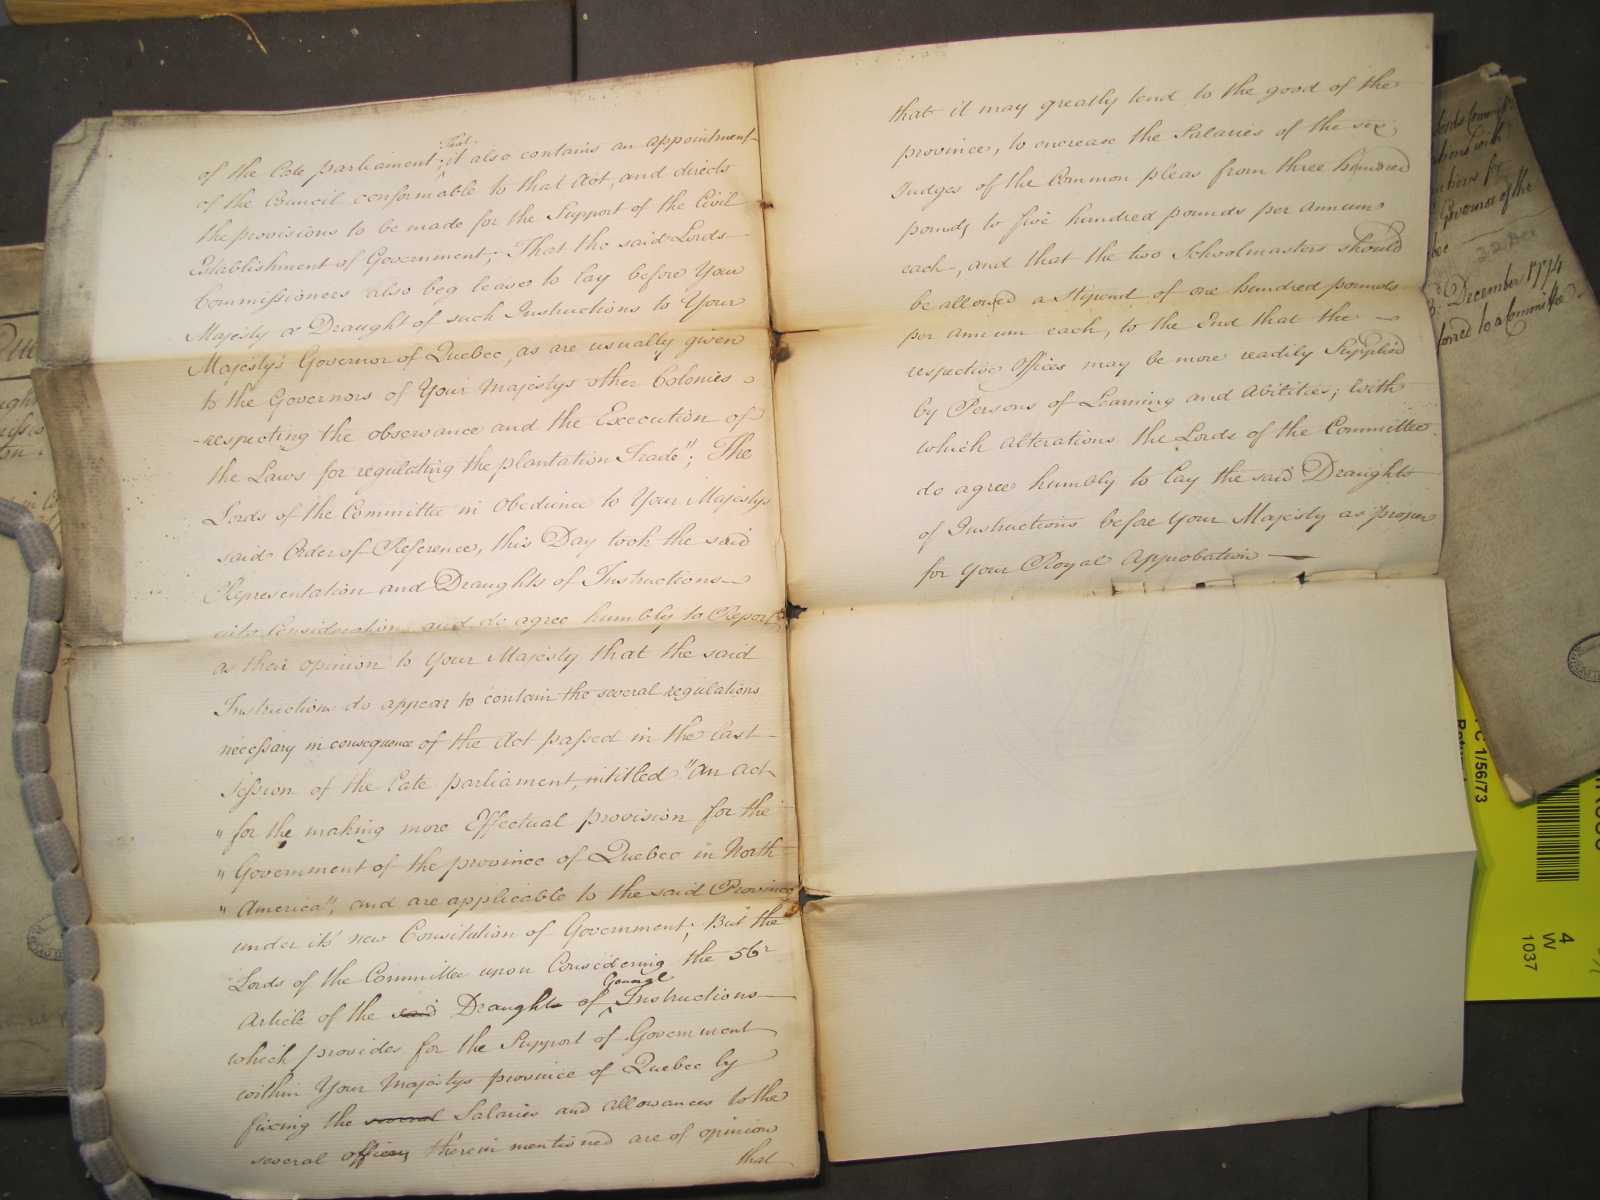 of the Late parliament; That it also contains an appointment
of the Council conformable to that Act, and directs
the provisions to be made for the Support of the Civil
Establishment of Government; That the said Lords
Commissioners also beg leave to lay before Your
Majesty a Draught of such Instructions to Your
Majesty's Governor of Quebec, as are usually given
to the Governors of Your Majestys other Colonies
respecting the observance and the Execution of
the Laws for regulating the plantation Trade"; The
Lords of the Committee in Obedience to Your Majestys
said Order of Reference, this Day took the said
Representation and Draughts of Instructions
into Consideration, and do agree humbly to Report
as their opinion to Your Majesty that the said
Instructions do appear to contain the several regulations
necessary in consequence of the Act passed in the last
Session of the Late parliament, intitled "An Act
" for the making more Effectual provision for the
" Government of the province of Quebec in North
" America", and are applicable to the said Province
under it's new Constitution of Government; But the
Lords of the Committee upon Considering the 56th
Article of the said Draught of General Instructions
which provides for the Support of Government
within Your Majestys province of Quebec by
fixing the several Salaries and allowances to the
several officers therein mentioned are of opinion
that
that it may greatly tend to the good of the
province, to encrease the Salaries of the six
Judges of the Common pleas from three hundred
pounds to five hundred pounds per annum
each, and that the two Schoolmasters should
be allowed a Stipend of one hundred pounds
per annum each, to the End that the
respective Offices may be more readily Supplied
by Persons of Learning and Abilities; With
which alterations the Lords of the Committee
do agree humbly to lay the said Draughts
of Instructions before Your Majesty as proper
for Your Royal Approbation
Lords Commrs
Governor of the
22 Dec
December 1774
to a Committee
PC 1/56/73
4
W
1037